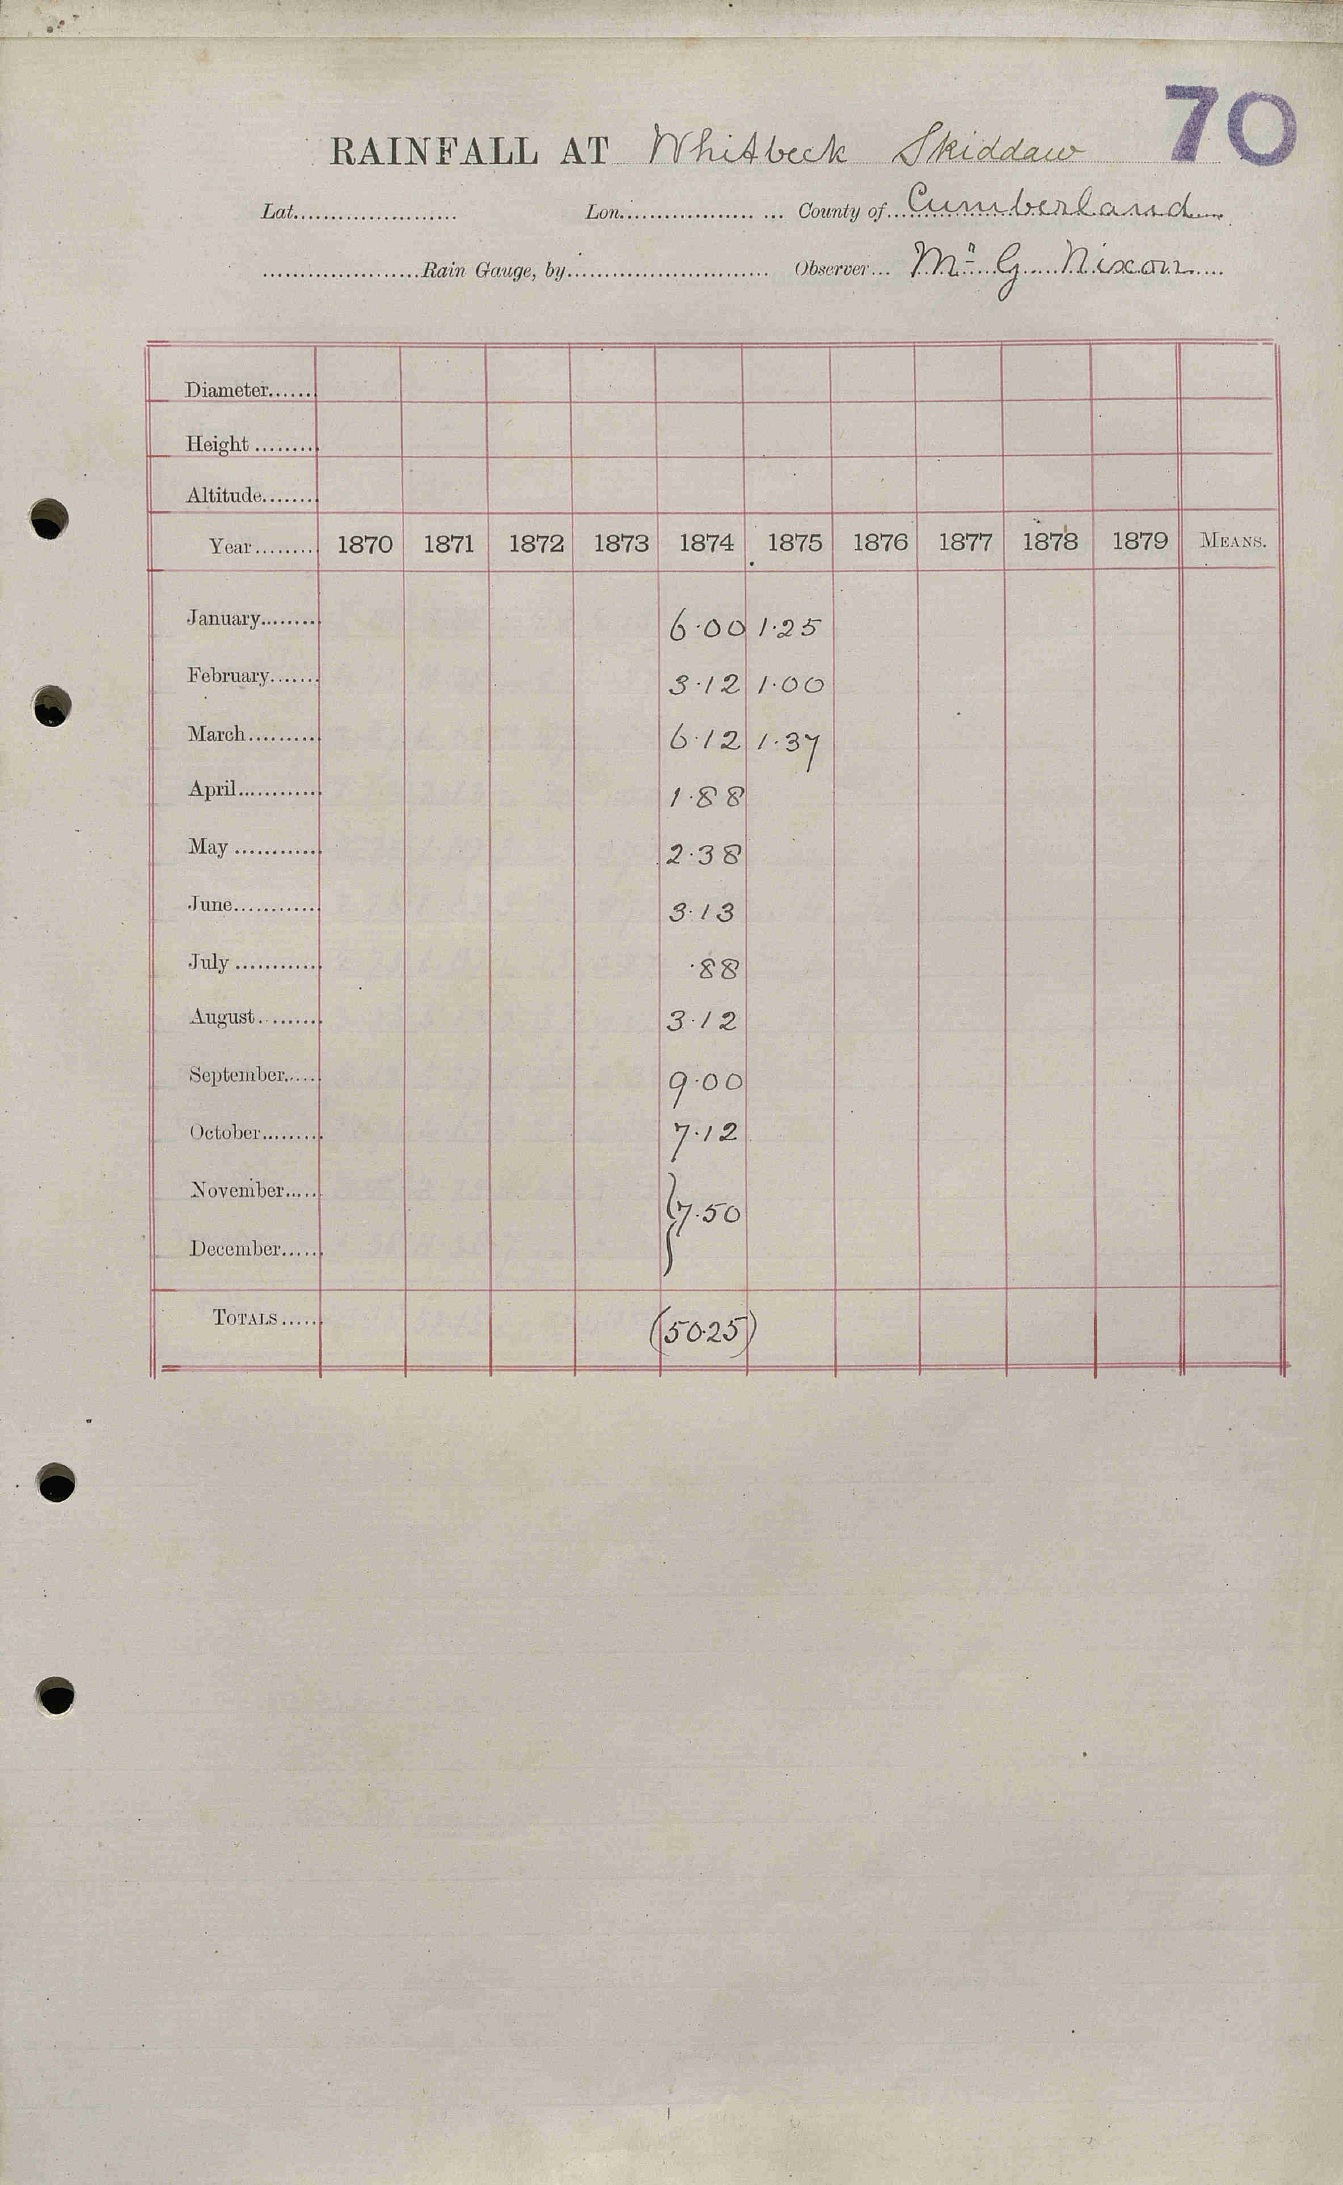 70
RAINFALL AT Whitbeck Skiddaw
Lat. Lon. County of Cumberland
Rain Gauge, by Observer Mr G Nixon
Diameter
Height
Altitude
Year 1870 1871 1872 1873 1874 1875 1876 1877 1878 1879 MEANS.
January 6.00 1.25
February 3.12 1.00
March 6.12 1.37
April 1.88
May 2.38
June 3.13
July .88
August 3.12
September 9.00
October 7.12
November } 7.50
December
TOTALS (50.25)